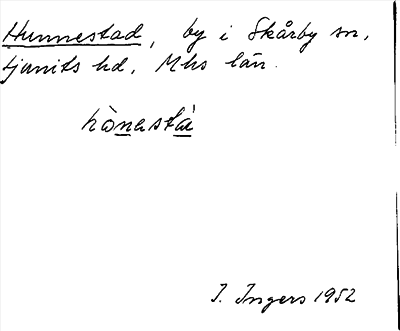 Hunnestad, by i Skårby sn,
Ljunits hd, Mhs län.
I. Ingers 1952